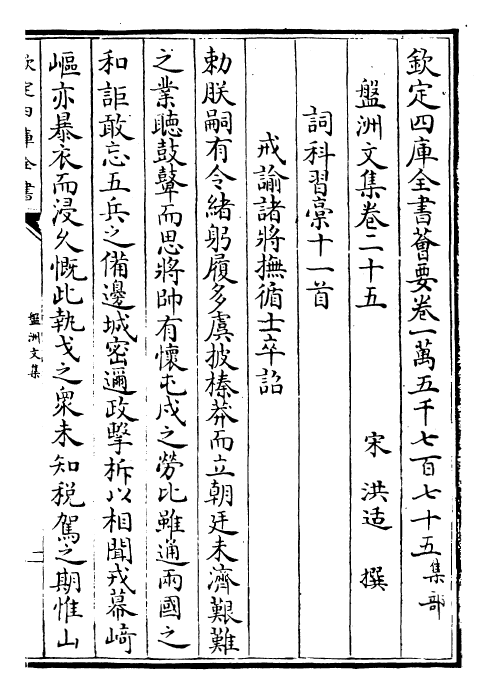 欽定四庫全書薈要卷一萬五千七百七十五集部
盤洲文集卷二十五
宋 洪适 撰
詞科習藁十一首
戒諭諸將撫循士卒詔
勅朕嗣有令緒躬履多虞披榛莽而立朝廷未濟艱難
之業聽鼓鼙而思將帥有懷屯戍之勞比雖通兩國之
和詎敢忘五兵之備邊城密邇政擊柝以相聞戎幕崎
嶇亦暴衣而浸久慨此執戈之衆未知税駕之期惟山
欽定四庫全書
盤洲文集